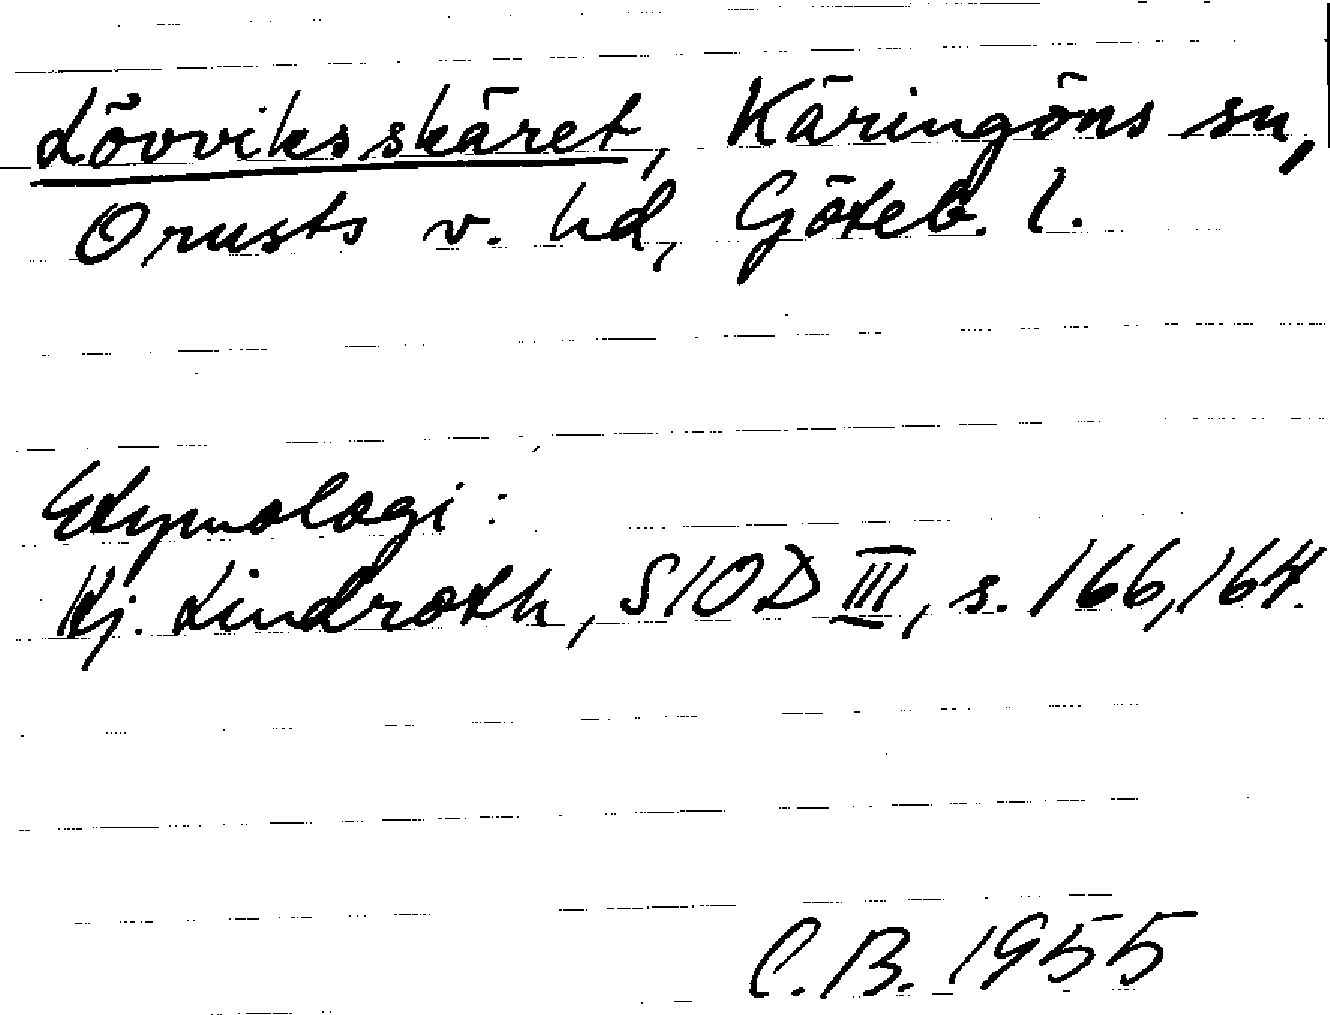 Lövviksskäret, Käringöns sn,
Orusts v. hd, Göteb. l.
Etymologi:
Hj. Lindroth, SIOD III, s. 166, 164.
C.B. 1955